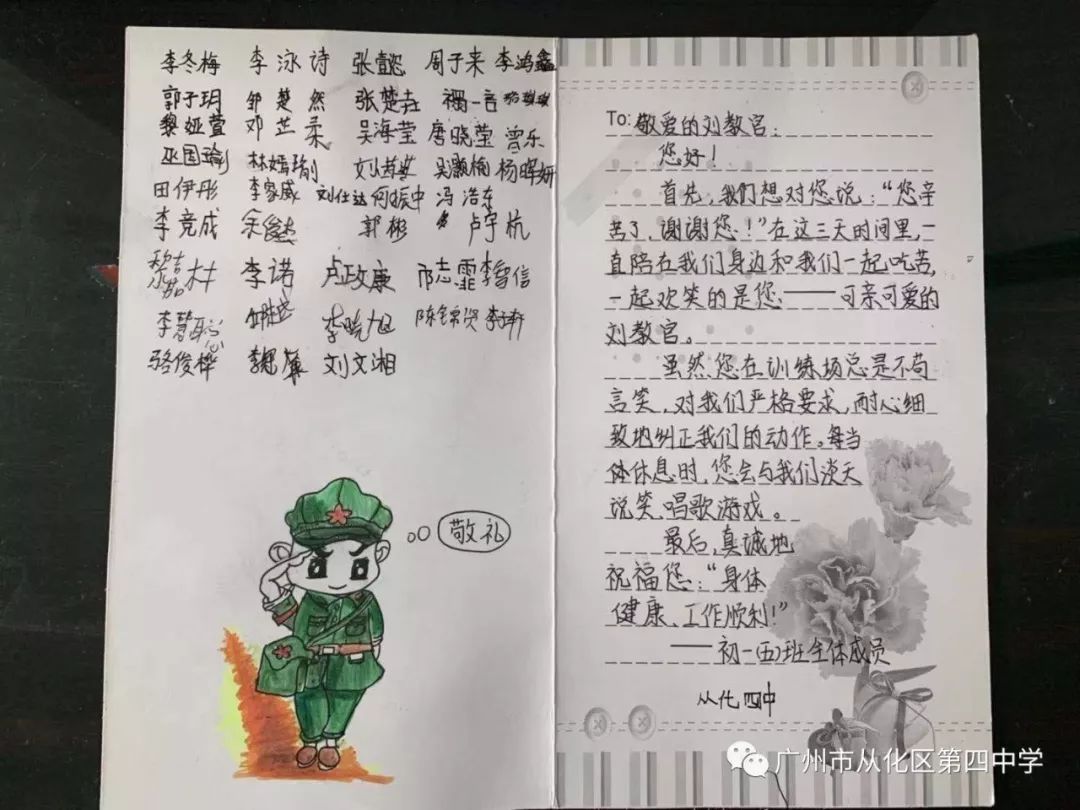 李冬梅 李泳诗 张懿 周子来 李鸿鑫
郭子玥 邹楚然 张楚垚 禤一言
黎娅萱 邓芷柔 吴海莹 唐晓莹 曾乐
巫国瑜 林嫣瑜 吴颢楠 杨晖妍
田伊彤 李家威 刘仕达 何振中 冯浩东
李竞成 余俊杰 郭彬 卢宇杭
李诺 卢政康 邝志霏 李智信
李慧聪 李晓旭
骆俊桦 魏薰 刘文湘
敬礼
To:敬爱的刘教官:
您好!
首先,我们想对您说:“您辛
苦了,谢谢您!”在这三天时间里,一
直陪在我们身边和我们一起吃苦,
一起欢笑的是您——可亲可爱的
刘教官。
虽然您在训练场总是不苟
言笑,对我们严格要求,耐心细
致地纠正我们的动作。每当
体休息时,您会与我们谈天
说笑,唱歌游戏。
最后,真诚地
祝福您:“身体
健康,工作顺利!”
——初一(五)班全体成员
从化四中
广州市从化区第四中学